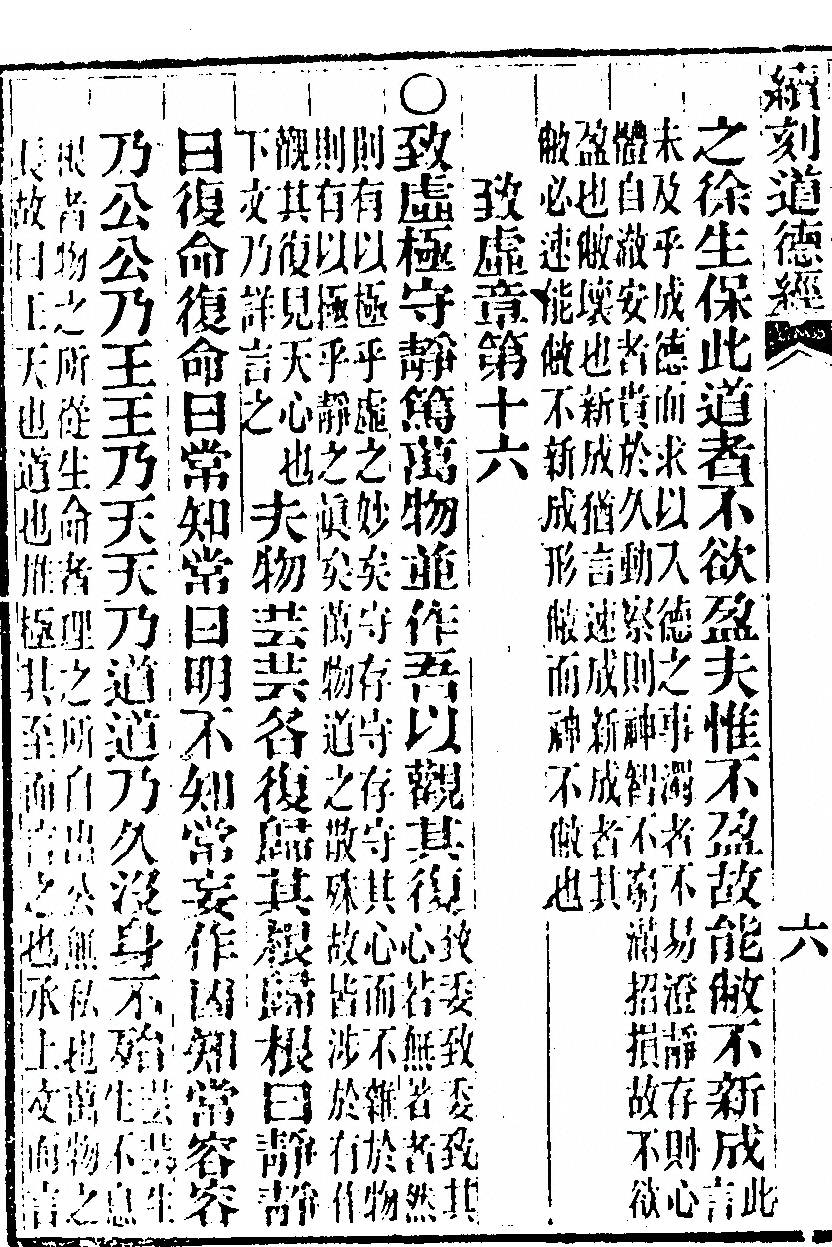 續刻道德經　六
之徐生保此道者不欲盈夫惟不盈故能敝不新成此言
未及乎成德而求以入德之事濁者不易澄靜存則心
體自澈安者貴於久動察則神智不窮滿招損故不欲
盈也敝壞也新成猶言速成新成者其
敝必速能敝不新成形敝而神不敝也
致虛章第十六
○致虛極守靜篤萬物並作吾以觀其復致委致委致其心若無著者然
則有以極乎虛之妙矣守存守存守其心而不雜於物
則有以極乎靜之眞矣萬物道之散殊故皆涉於有作
觀其復見天心也
下文乃詳言之
夫物芸芸各復歸其根歸根曰靜靜
曰復命復命曰常知常曰明不知常妄作凶知常容容
乃公公乃王王乃天天乃道道乃久沒身不殆芸芸生生不息
根者物之所從生命者理之所自出公無私也萬物之
長故曰王天也道也推極其至而言之也承上文而言